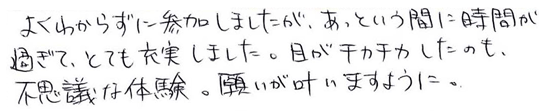 よくわからずに参加しましたが、あっという間に時間が
過ぎて、とても充実しました。目がチカチカしたのも、
不思議な体験。願いが叶いますように。